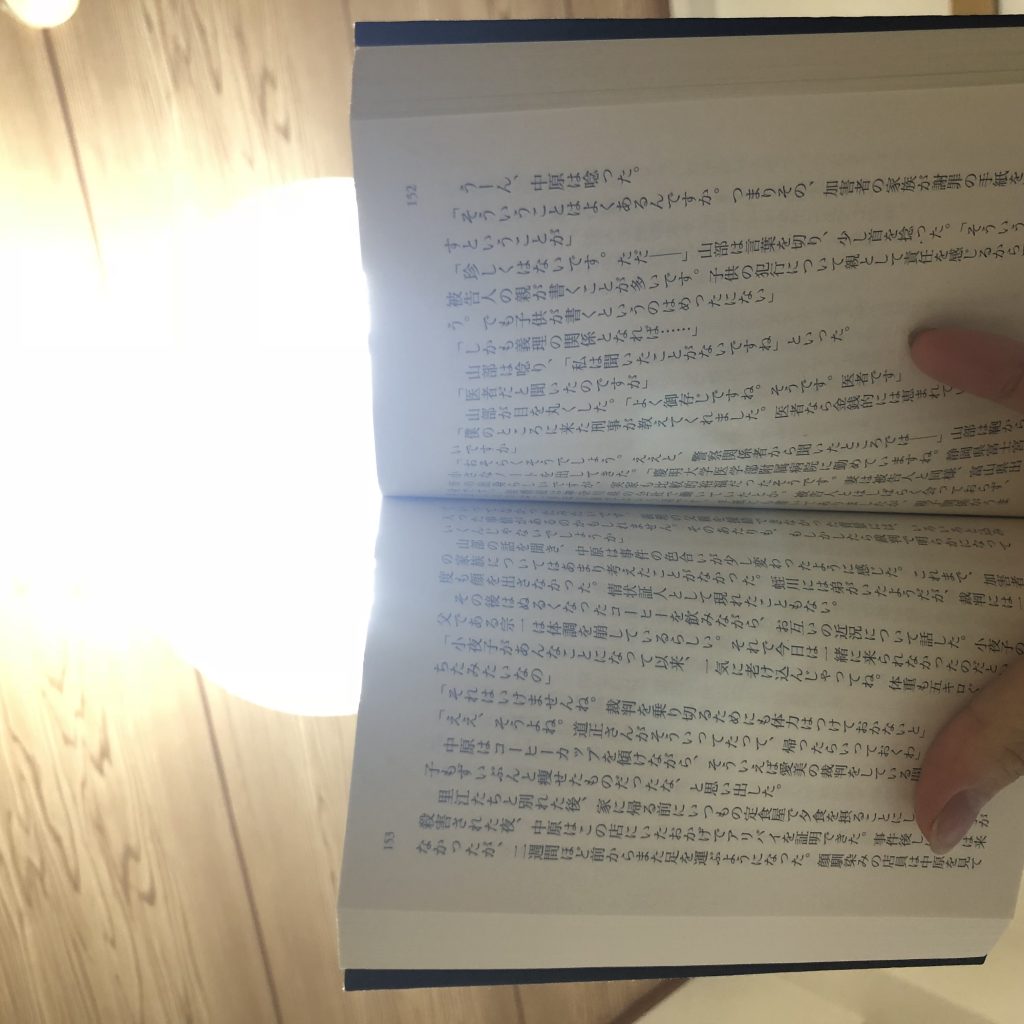 152
うーん、中原は唸った。
「そういうことはよくあるんですか。つまりその、加害者の家族が謝罪の手紙を
すということが」
「珍しくはないです。ただ――」山部は言葉を切り、少し首を捻った。「そういう
被告人の親が書くことが多いです。子供の犯行について親として責任を感じるから
う。でも子供が書くというのはめったにない」
「しかも義理の関係となれば……」
山部は唸り、「私は聞いたことがないですね」といった。
「医者だと聞いたのですが」
山部が目を丸くした。「よく御存じですね。そうです。医者です」
「僕のところに来た刑事が教えてくれました。医者なら金銭的には恵まれて
いですか」
「おそらくそうでしょう。ええと、警察関係者から聞いたところでは――」山部は鞄から
を出してきた。「慶明大学医学部附属病院に勤めていますね。静岡県富士宮
妻は被告人と同様、富山県出
いろんじゃないでしょうか」
山部の話を聞き、中原は事件の色合いが少し変わったように感じた。これまで、加害者
の家族についてはあまり考えたことがなかった。蛭川には弟がいたようだが、裁判には一
度も顔を出さなかった。情状証人として現れたこともない。
その後はぬるくなったコーヒーを飲みながら、お互いの近況について話した。小夜子の
父である宗一は体調を崩しているらしい。それで今日は一緒に来られなかったのだとい
「小夜子があんなことになって以来、一気に老け込んじゃってね。体重も五キロ
ちたみたいなの」
「それはいけませんね。裁判を乗り切るためにも体力はつけておかないと」
「ええ、そうよね。道正さんがそういってたって、帰ったらいっておくわ」
中原はコーヒーカップを傾けながら、そういえば愛美の裁判をしている間
子もずいぶんと痩せたものだったな、と思い出した。
里江たちと別れた後、家に帰る前にいつもの定食屋で夕食を摂ることにし
殺害された夜、中原はこの店にいたおかげでアリバイを証明できた。事件後し は来
なかったが、二週間ほど前からまた足を運ぶようになった。顔馴染みの店員は中原を見て
153